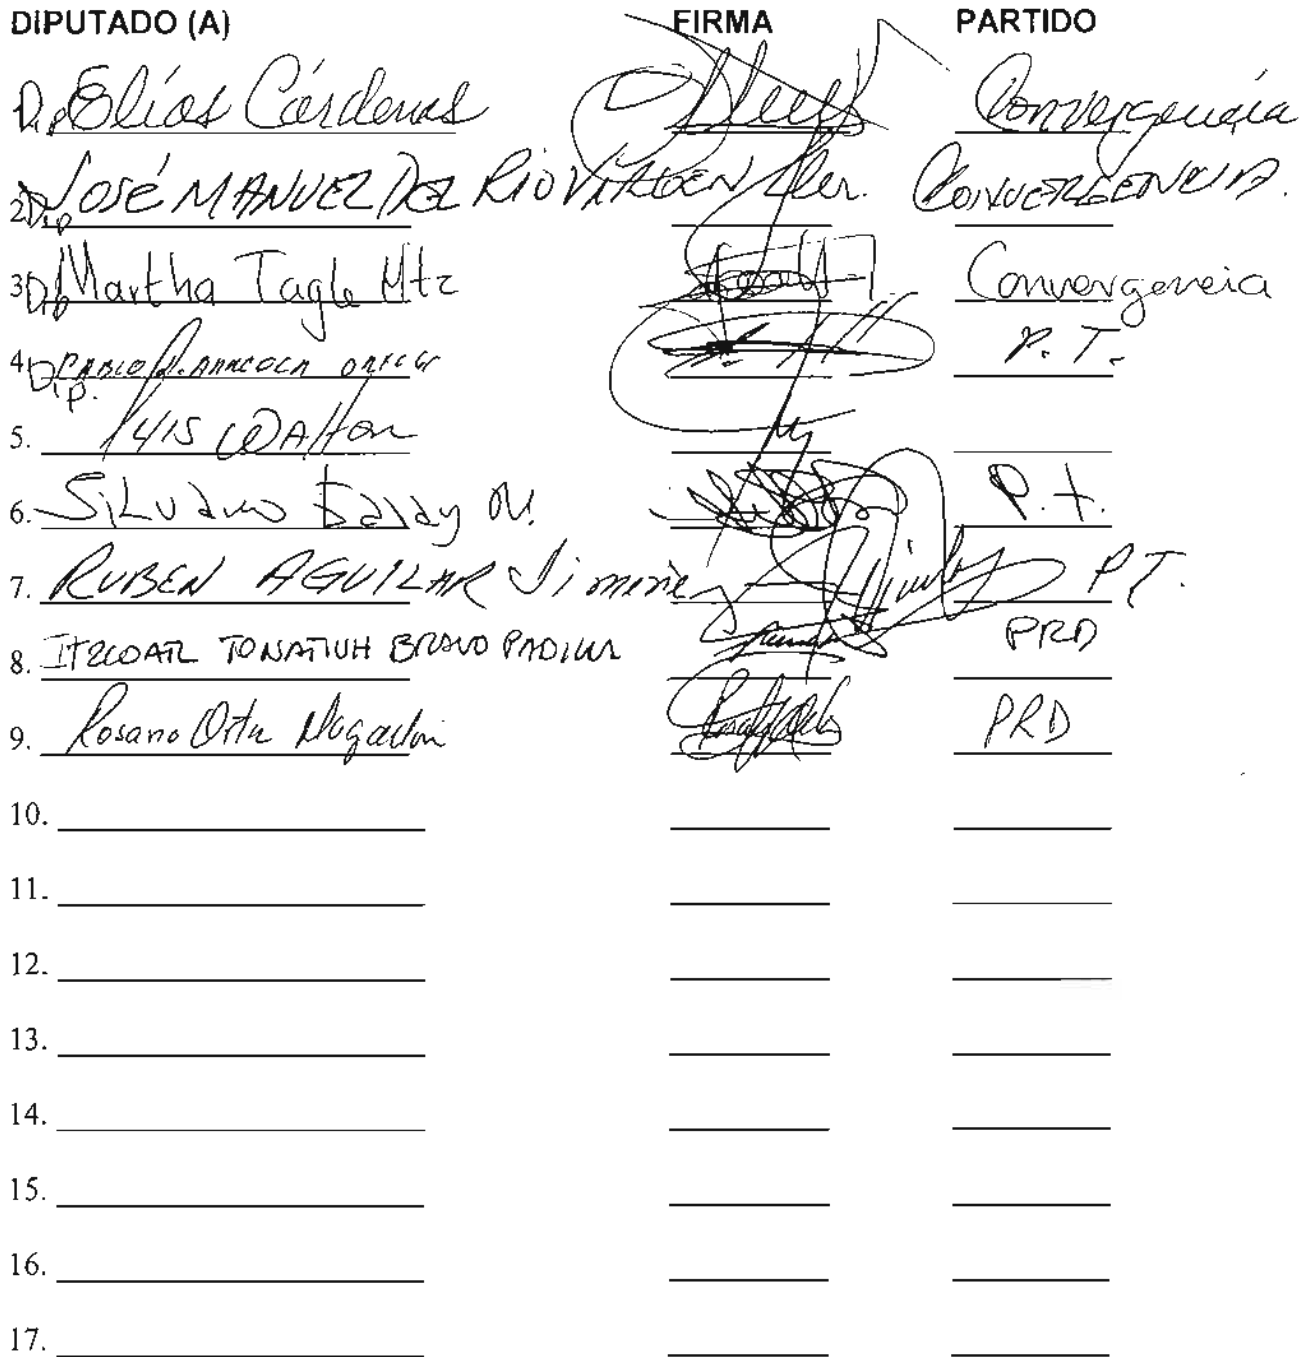 DIPUTADO (A) FIRMA PARTIDO
Dip Elías Cárdenas Convergencia
2. Dip JOSÉ MANUEL DEL RIO VIRGEN CONVERGENCIA.
3. Dip Martha Tagle Mtz Convergencia
4. Dip. PABLO P.T.
5. Luis Walton
6. Silvano Garay U. P.t.
7. RUBEN AGUILAR Jimenez P T.
8. ITZCOATL TONATIUH BRAVO PADILLA PRD
9. Rosario Ortiz PRD
10.
11.
12.
13.
14.
15.
16.
17.